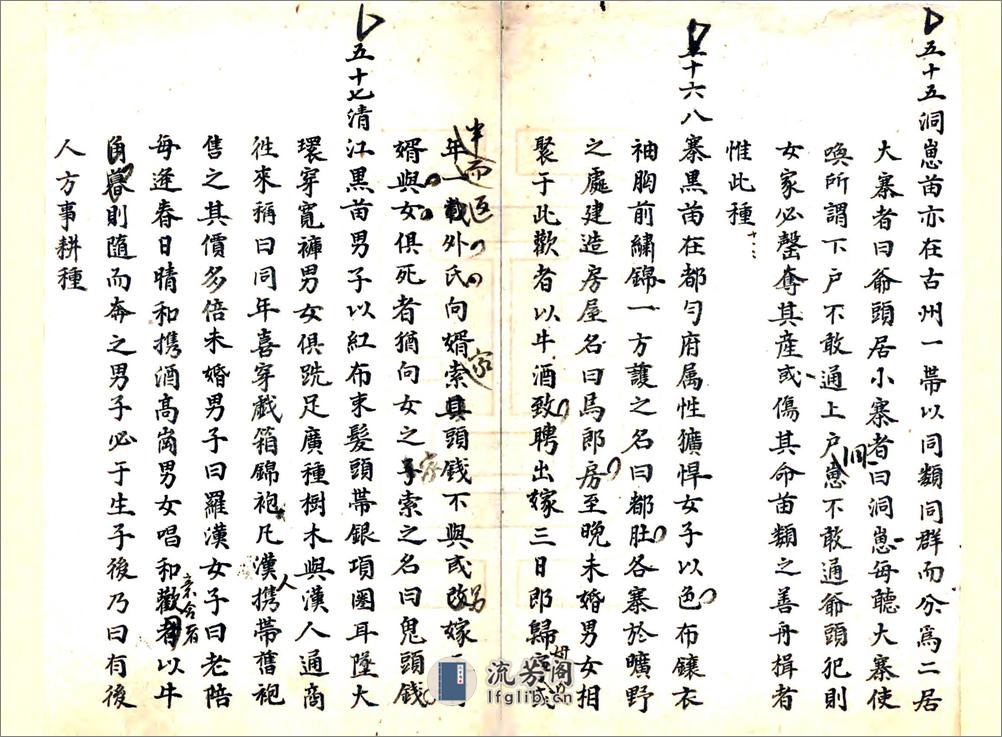 五十五洞崽苗亦在古州一帶以同類同群而分爲二居
大寨者曰爺頭居小寨者曰洞崽每聽大寨使
喚所謂下户不敢通上户洞崽不敢通爺頭犯則
女家必罄奪其産或傷其命苗類之善舟楫者
惟此種
五十六八寨黑苗在都勻府属性獷悍女子以色布鑲衣
袖胸前繡錦一方護之名曰都肚各寨於曠野
之處建造房屋名曰馬郎房至晚未婚男女相
聚于此歡者以牛酒致聘出嫁三日即歸
半而返
年一載外氏向婿索頭錢不與或改嫁
家
另
婿與女俱死者猶向女之子索之名曰鬼頭錢
五十七清江黑苗男子以紅布束髮頭帶銀項圈耳墜大
環穿寬褲男女俱跣足廣種樹木與漢人通商
徃來稱曰同年喜穿戲箱錦袍凡漢人携帶舊袍
售之其價多倍未婚男子曰羅漢女子曰老陪
每逢春日晴和携酒高崗男女唱和歡者以牛
意合者
角暮則隨而奔之男子必于生子後乃曰有後
人方事耕種
流芳阁
lfglib.cn